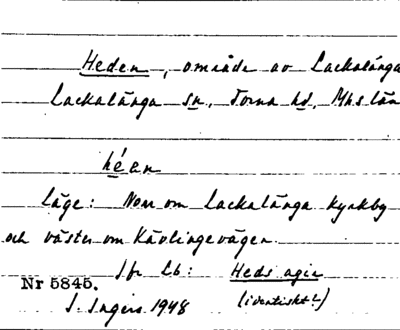 Heden, område av Lackalänga
Lackalänga sn, Torna hd, Mhs län
héen
Läge: Norr om Lackalänga kyrkby
och väster om Kävlingevägen.
Jfr Lb: Heds agie
Nr 5845. (identiskt?)
S. Ingers 1948